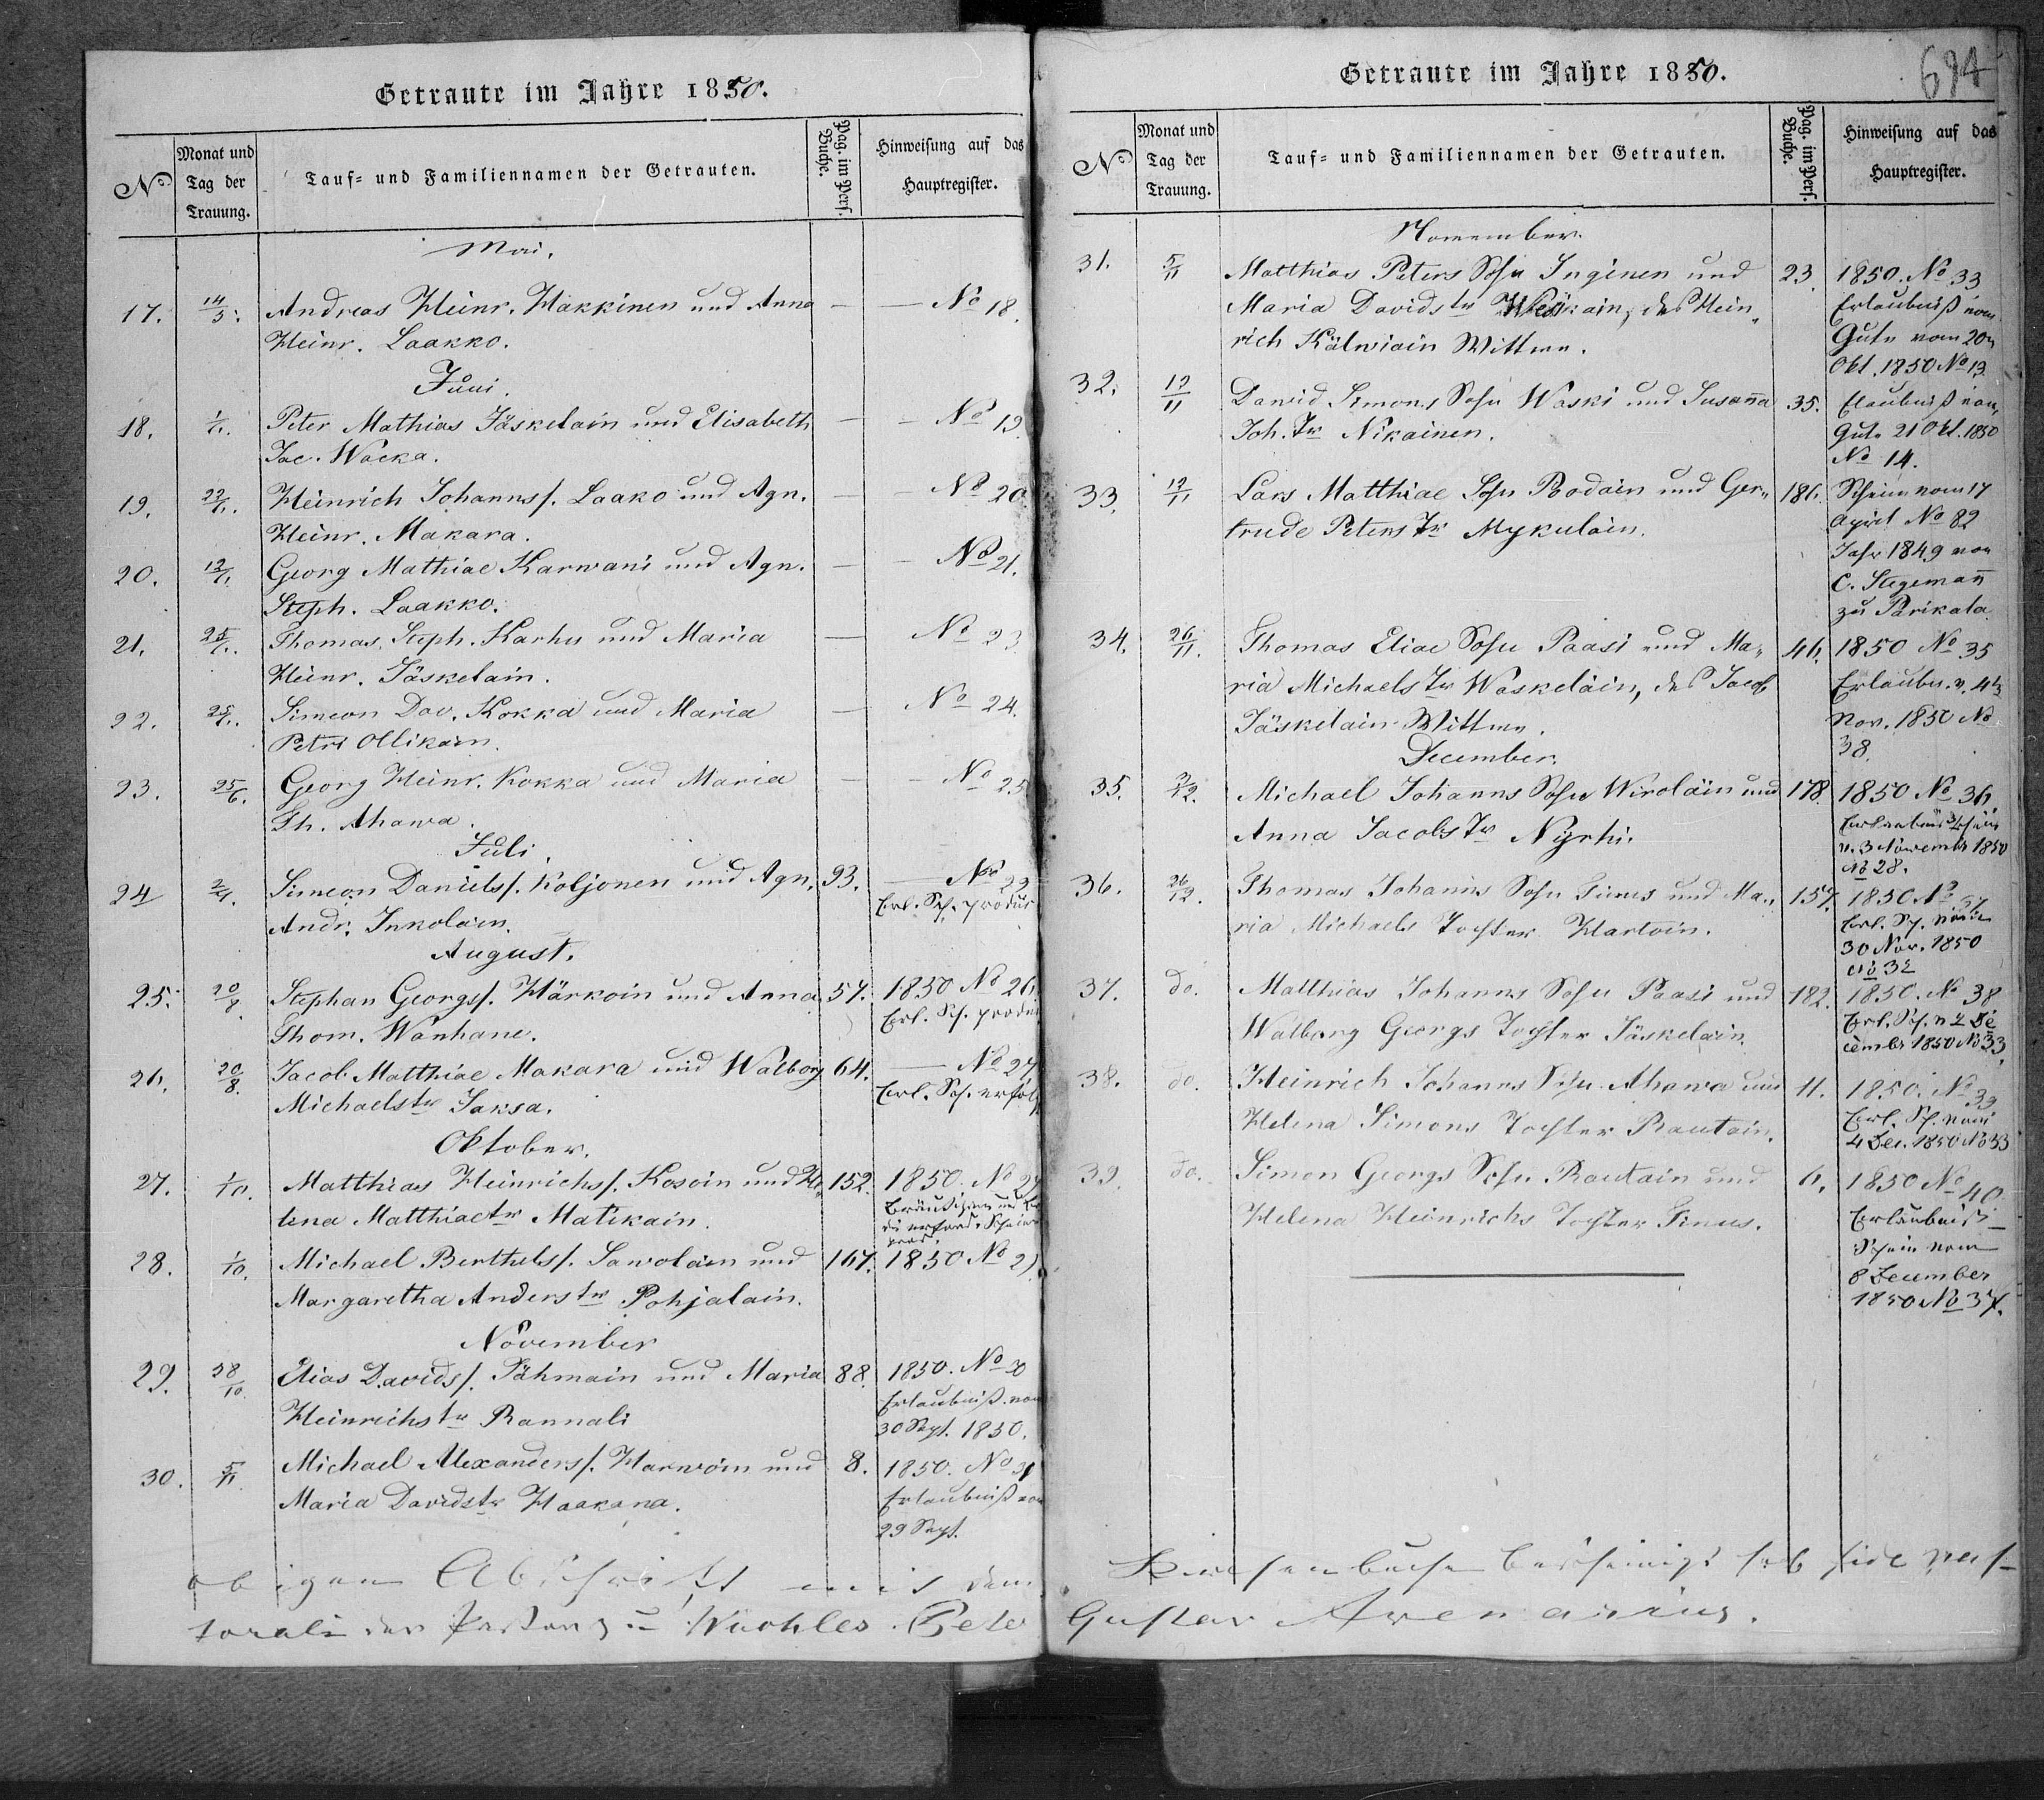 Getraute im Jahre 1850.
No
Monat und Tag der Trauung.
Tauf- und Familiennamen der Getrauten.
Pag. im Pers. Buche.
Hinweisung auf das Hauptregister.
Mai.
17. 14/5. Andreas Heinr. Hakkinen und Anna — — No 18.
Heinr. Laakko.
Juni.
18. Peter Mathias Jäskelain und Elisabeth — — No 19.
Jac. Wacka.
19. Heinrich Johanns/. Laako und Agn. — — No 20.
Heinr. Makara.
20. Georg Mathiae Karwani und Agn. — — No 21.
Steph. Laakko.
21. Thomas Steph. Karhu und Maria — — No 23.
Heinr. Jäskelain.
22. Simeon Dav. Kokka und Maria — — No 24.
Petri Ollikain.
23. 25/6. Georg Heinr. Kokka und Maria — — No 25
Th. Ahawa.
Juli.
24 Simeon Daniels/. Koljonen und Agn. 93. — No
Erl. Sch. produ
Andr. Inkolain.
August.
25. 20/8. Stephan Georgs/. Härkoin und Anna 57. 1850 No 26.
Erl. Sch. produ
Thom. Wanhane.
26. 20/8. Jacob Matthiae Makara und Walborg 64. — No 27
Erl. Sch.
Michaelstr Saksa.
Oktober.
27. 1/10. Matthias Heinrichs/. Kosoin und He- 152. 1850. No
lena Matthiaetr Matikain.
28. 1/10. Michael Berthels/. Sawolain und 167. 1850 No 2
Margaretha Anderstr Pohjalain.
November
29. 28/10. Elias Davids/. Tähmain und Maria 88. 1850. No 30
Erlaubniß vom
Heinrichstr Rannali
30 Sept. 1850.
30. 5/11. Michael Alexanders/. Harwoin und 8. 1850. No 31
Maria Davidstr Haakana.
Erlaubniß vom
29 Sept.
obigen Abschrift mit dem
der Pastor zu Wuohles Pete
Getraute im Jahre 1850.
694
No
Monat und Tag der Trauung.
Tauf- und Familiennamen der Getrauten.
Pag. im Pers. Buche.
Hinweisung auf das Hauptregister.
November.
31. 5/11 Matthias Peters Sohn Inginen und 23. 1850. No 33
Maria Davidstr Wesikain, des Hein-
Erlaubniß vom
rich Kälwiain Wittwe.
Gute vom 20n
Okt. 1850 No 13.
32. 12/11 David Simons Sohn Waski und Susanna 35. Elaubniß vom
Joh. Tr Nikainen.
Gute 21 Okt. 1850
No 14.
33. 12/11 Lars Matthiae Sohn Rodain und Ger- 186. Schein vom 17
trude Peters Tr Mykulain.
April No 82
Jahr 1849 von
C. Stegemann
zu Parikala
34. 26/11. Thomas Eliae Sohn Paasi und Ma- 46. 1850 No 35
ria Michaels Tr Waskeläin, des Jacob
Erlaubn. v. 4ten
Jäskelain Wittwe.
Nov. 1850 No
38.
December.
35. 3/12. Michael Johanns Sohn Wiroläin und 178. 1850 No 36.
Anna Jacobs Tr Nyrhi.
Erlaubnißschein
v. 3 November 1850
No 28.
36. 26/12. Thomas Johanns Sohn Tinus und Ma- 157. 1850 No 37
ria Michaels Tochter Hartoin.
Erl. Sch. vom
30 Nov. 1850
No 32
37. do. Matthias Johanns Sohn Paasi und 182. 1850. No 38
Walborg Georgs Tochter Jäskelain.
Erl. Sch. v 2 De
cembr 1850 No 33.
38. do. Heinrich Johanns Sohn Ahawa und 11. 1850. No 39
Helena Simons Tochter Rautain.
Erl. Sch. vom
4 Dec. 1850 No 33
39. do. Simon Georgs Sohn Rautain und 6. 1850 No 40
Helena Heinrichs Tochter Tinus.
Erlaubniß-
Schein vom
8 December
1850 No 37.
Kirchenbuche bescheinigt sub fide pas-
Gustav Avenarius.